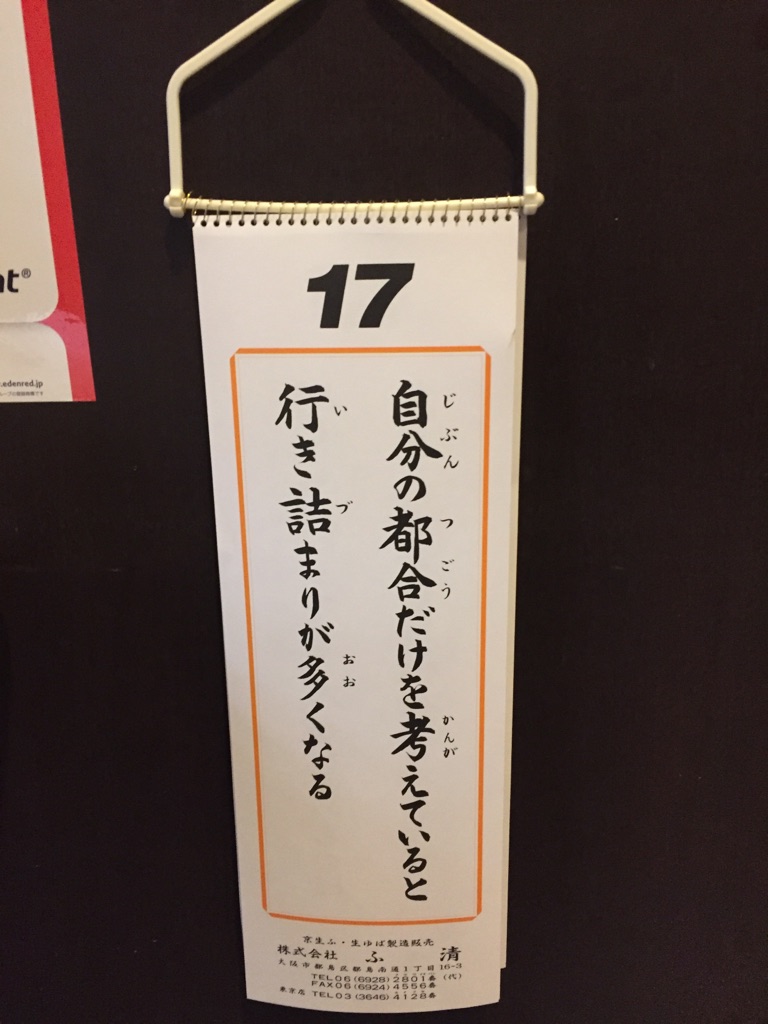 nt®
.edenred.jp
17
自分の都合だけを考えていると
じぶん つごう かんが
行き詰まりが多くなる
い づ おお
京生ふ・生ゆば製造販売
株式会社 ふ清
大阪市都島区都島南通1丁目16-3
TEL06(6928)2801番(代)
FAX06(6924)4556番
東京店 TEL03(3646)4128番